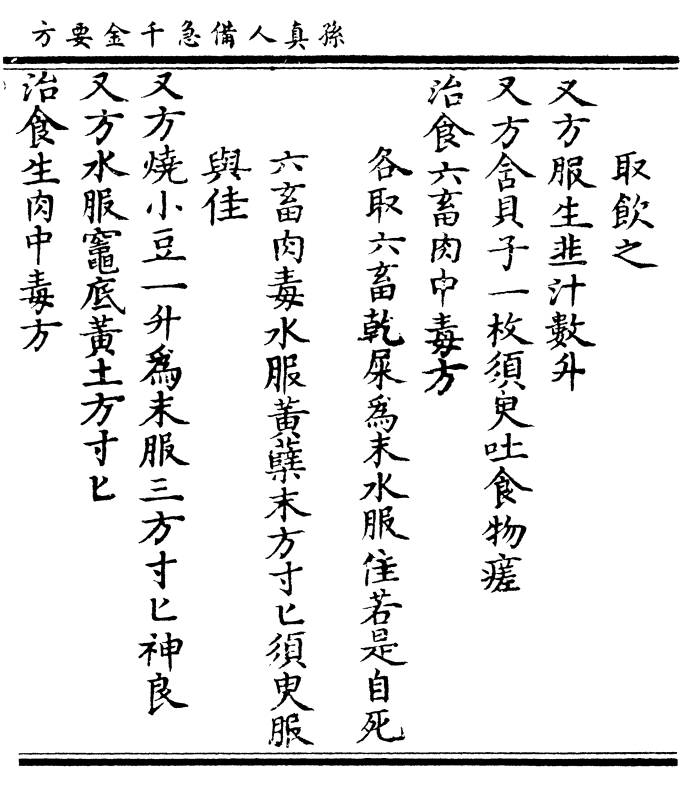 孫真人備急千金要方
取飲之
又方服生韭汁數升
又方含貝子一枚須臾吐食物瘥
治食六畜肉中毒方
各取六畜乾屎為末水服佳若是自死
六畜肉毒水服黃蘗末方寸匕須臾服
與佳
又方燒小豆一升為末服三方寸匕神良
又方水服竈底黃土方寸匕
治食生肉中毒方